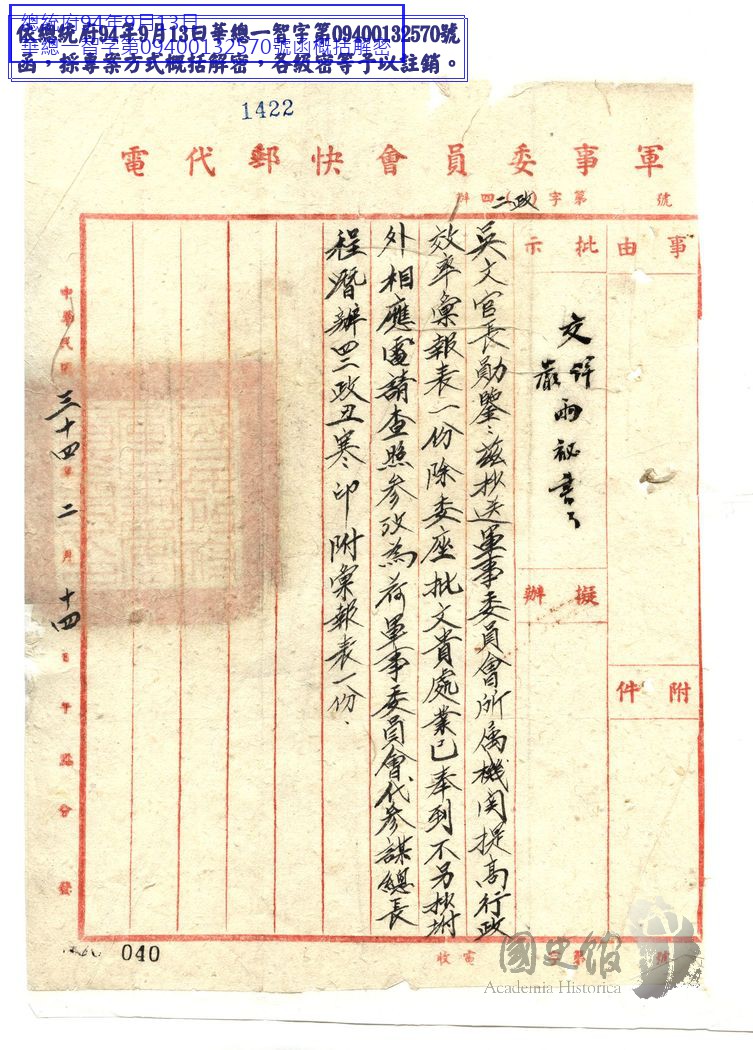 總統府94年9月13日
華總一智字第09400132570號函概括解密
依總統府94年9月13日華總一智字第09400132570號
函，採專案方式概括解密，各級密等予以註銷。
1422
軍事委員會快郵代電
辦四二政字第號
事由
附件
批示
擬辦
文
嚴
秘書
吳文官長勛鑒：茲抄送軍事委員會所屬機関提高行政
效率彙報表一份除委座批文貴處業已奉到不另抄附
外相應電請查照參攷為荷軍事委員會代參謀總長
程潛辦四二政丑寒印附彙報表一份、
中華民國三十四年二月十四日午時分發
040
電收第號
國史館
Academia Historica